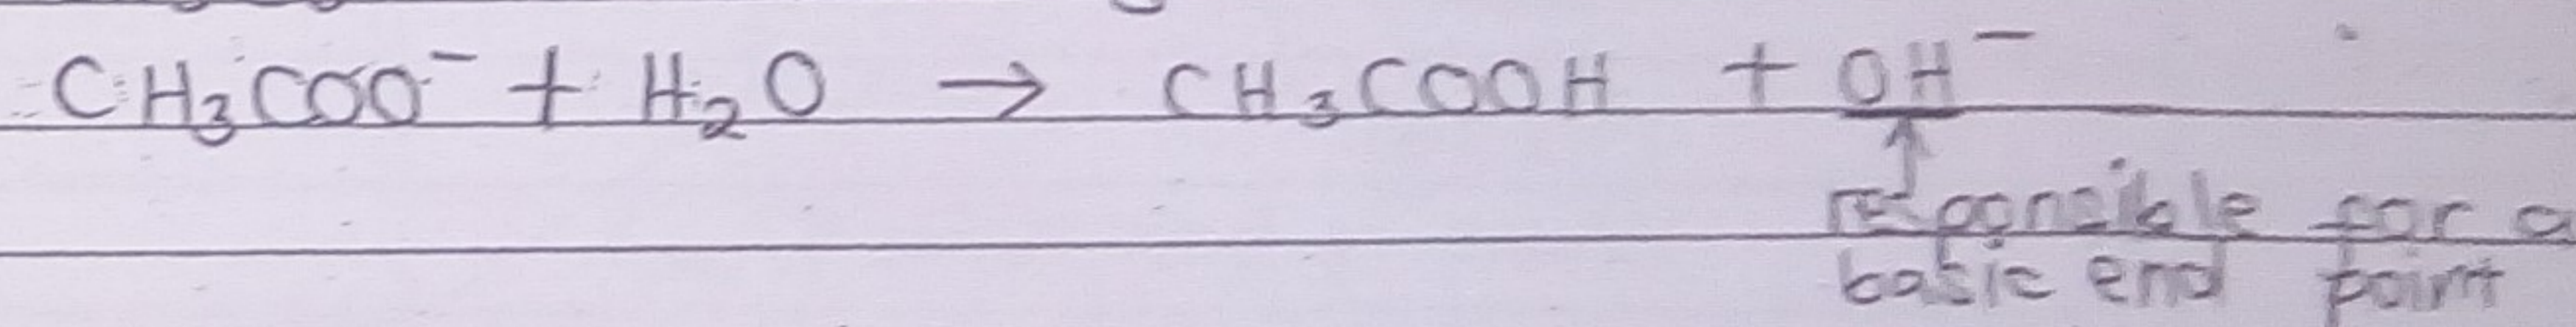 CH₃COO⁻ + H₂O → CH₃COOH + OH⁻
responsible for a
basic end point